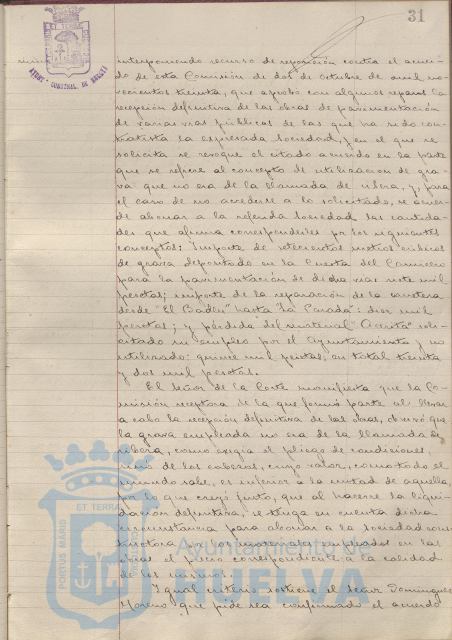 31
AYUNT. CONSTNAL. DE HUELVA
interponiendo recurso de reposición contra el acuer-
do de esta Comisión de dos de Octubre de mil no-
vecientos treinta, que aprobó con algunos reparos la
recepción definitiva de las obras de pavimentación
de varias vias públicas de las que ha sido con-
tratista la expresada Sociedad, y en el que se
solicita se revoque el citado acuerdo en la parte
que se refiere al concepto de utilización de gra-
va que no era de la llamada de ribera, y para
el caso de no accederse a lo solicitado, se acuer-
de abonar a la referida Sociedad las cantida-
des que afirma corresponderles por los siguientes
conceptos: Importe de setecientos metros cúbicos
de grava depositado en la Cuesta del Carnicero
para la pavimentación de dicha vias siete mil
pesetas; importe de la reparación de la carretera
desde "El Badén" hasta "La Parada": diez mil
pesetas; y pérdida del material solici-
citado su empleo por el Ayuntamiento y no
utilizado: quince mil pesetas, en total treinta
y dos mil pesetas.
El Señor de la Corte manifiesta que la Co-
misión receptora de la que formó parte al llevar
a cabo la recepción definitiva de las obras, observó que
la grava empleada no era de la llamada de
ribera, como exigia el pliego de condiciones,
sino de los cabezos, cuyo valor, como todo el
mundo sabe, es inferior a la mitad de aquella,
por lo que creyó justo, que al hacerse la liqui-
dación definitiva, se tenga en cuenta dicha
circunstancia para abonar a la Sociedad cons-
tructora por los materiales empleados en las
obras el precio correspondiente a la calidad
de los mismos.
Igual criterio sostiene el Señor Dominguez
Moreno que pide sea confirmado el acuerdo
PORTUS MARIS ET TERRAE CUSTODIA
Ayuntamiento de
HUELVA